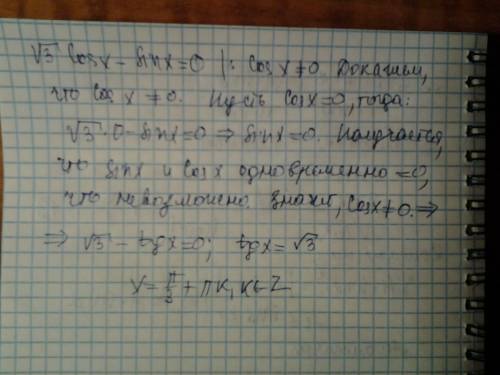 √3 Cosx - Sinx = 0 |: Cosx ≠ 0. Докажем,
что Cosx ≠ 0. Пусть Cosx = 0, тогда:
√3 · 0 - Sinx = 0 ⇒ Sinx = 0. Получается,
что Sinx и Cosx одновременно = 0,
что невозможно. Значит, Cosx ≠ 0. ⇒
⇒ √3 - tgx = 0; tgx = √3
x = π/3 + πk, k ∈ Z